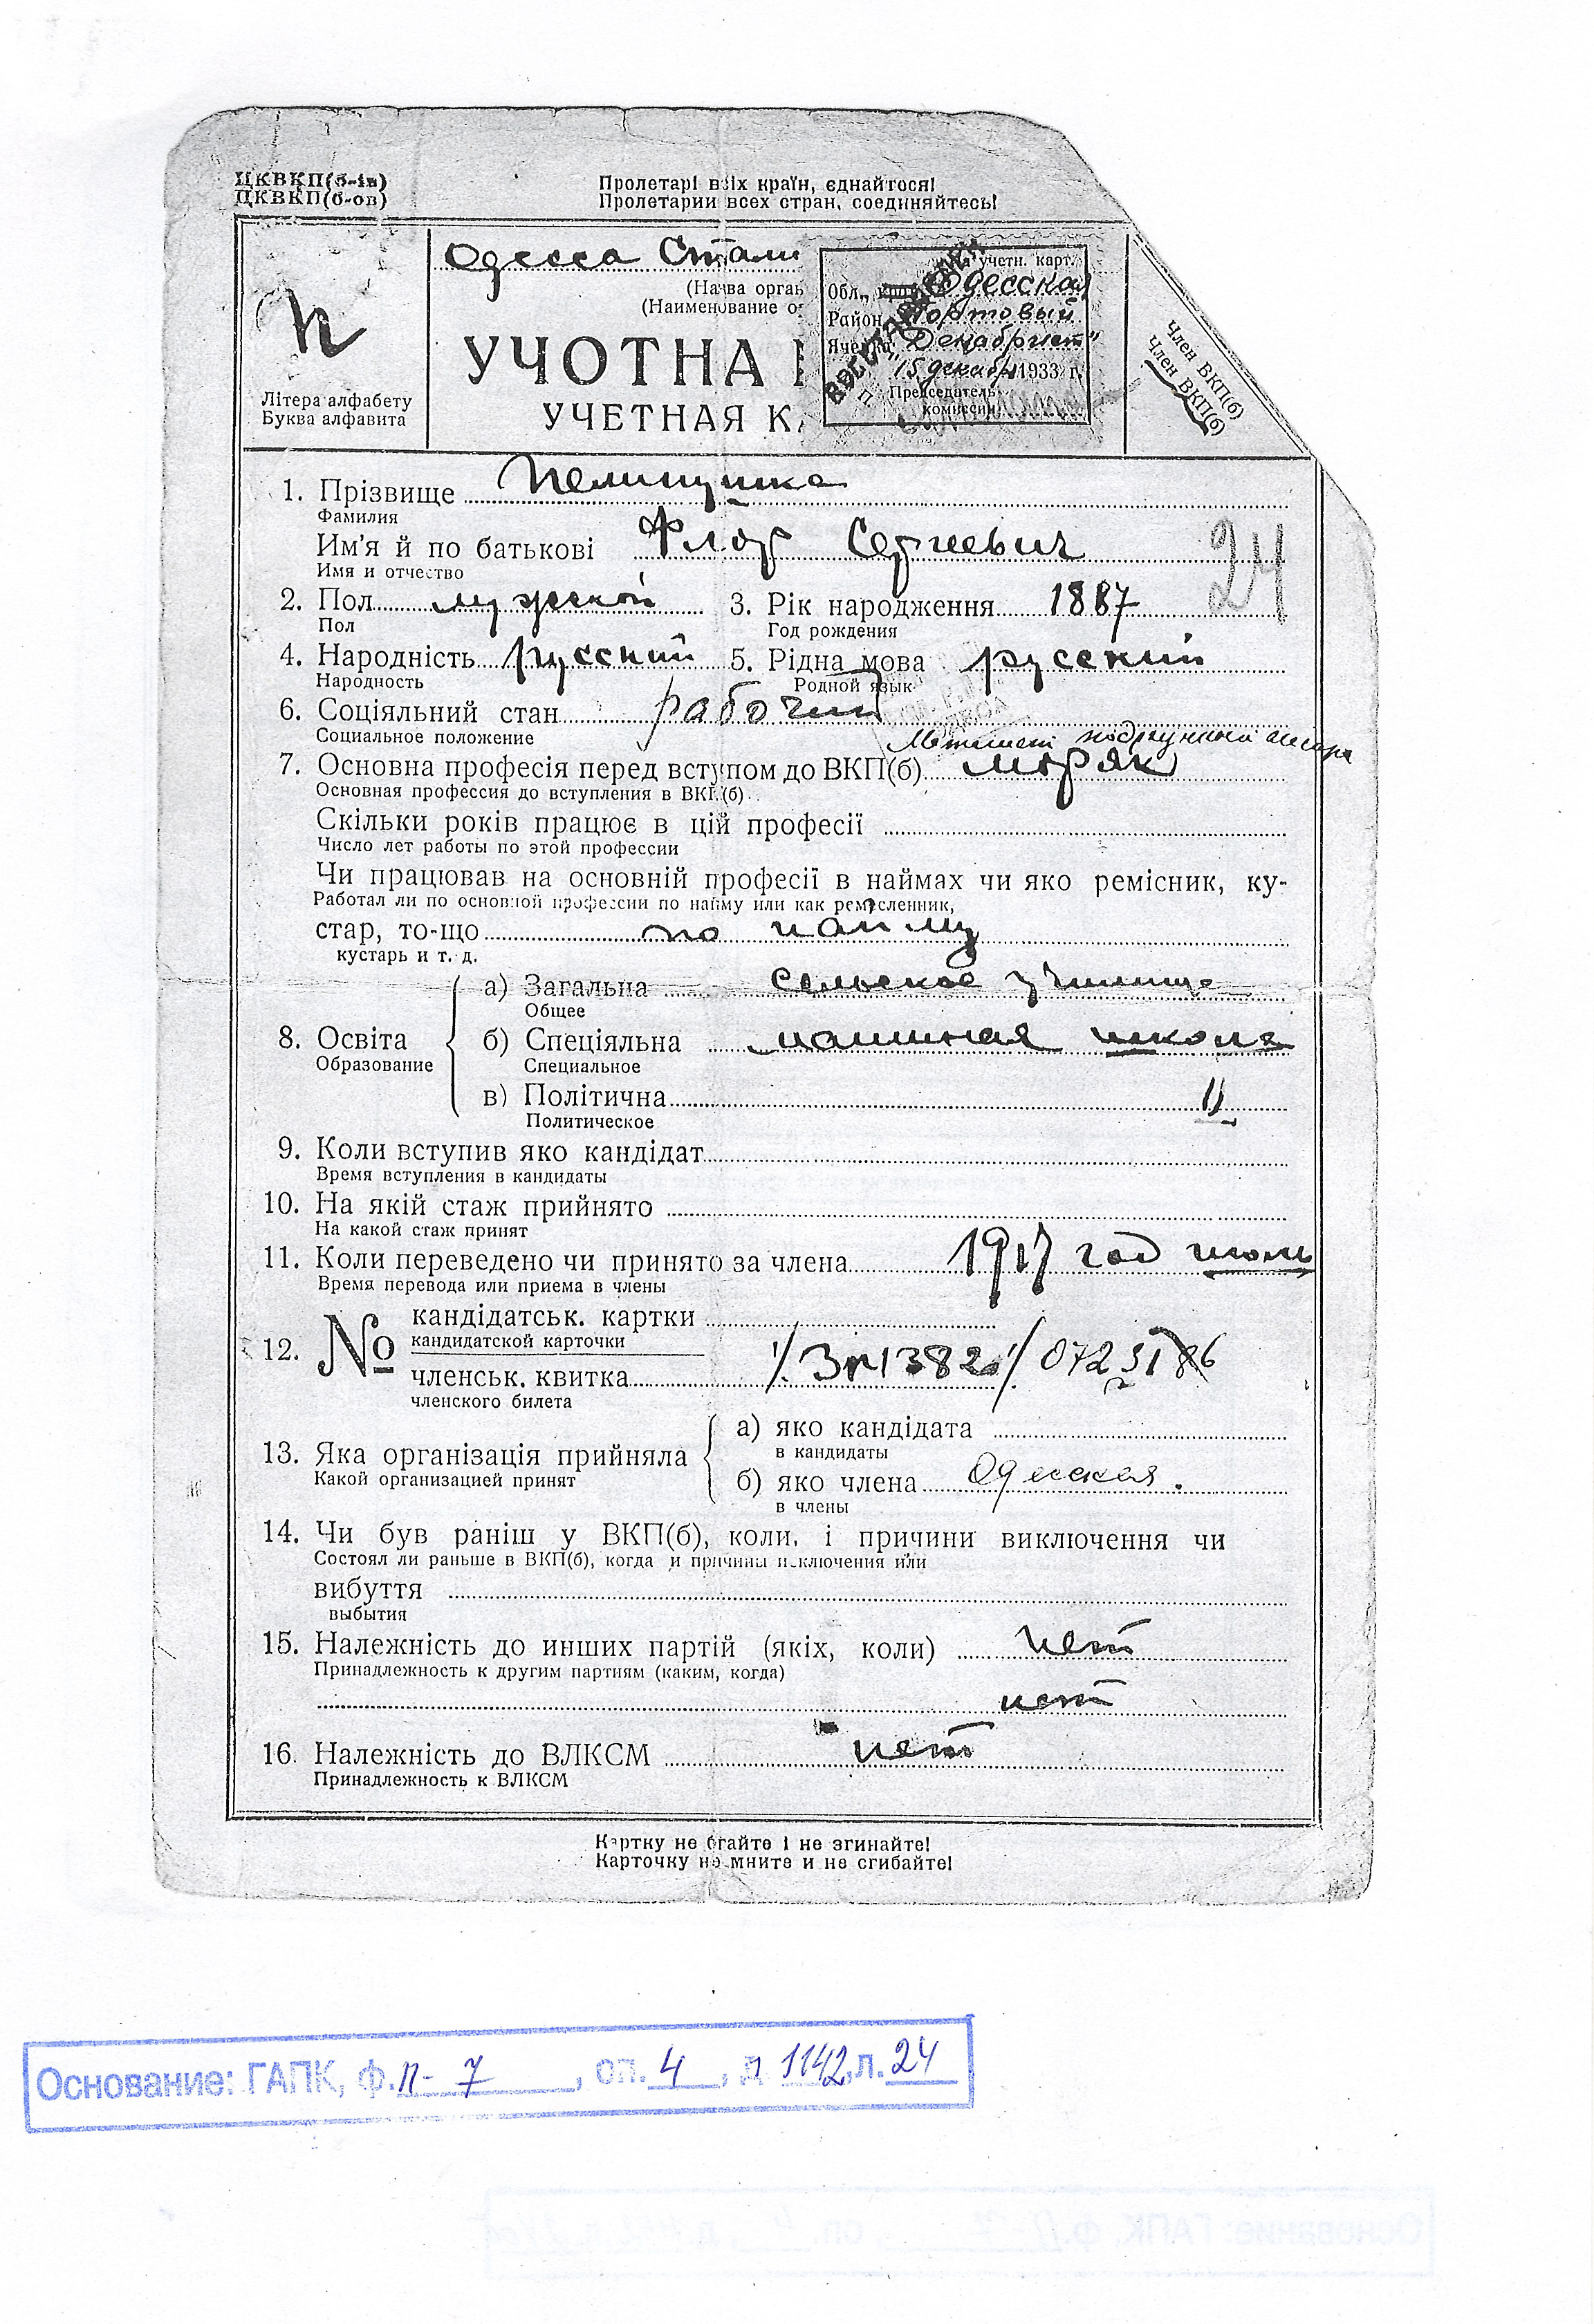 ЦКВКП(б-ів)
ЦКВКП(б-ов)
Пролетарі всіх країн, єднайтося!
Пролетарии всех стран, соединяйтесь!
П
Літера алфабету
Буква алфавита
Одесса Стали
(Назва орган
(Наименование о
УЧОТНА К
УЧЕТНАЯ КА
На учетн. карт.
Обл., край Одесская
Район Портовый
Ячейка „Декабрист"
„15 декабр 1933 г.
Председатель
комиссии
Член ВКП(б)
Член ВКП(б)
1. Прізвище Пелипушка
Фамилия
Им'я й по батькові Флор Сергиевич
Имя и отчество
24
2. Пол мужской 3. Рік народження 1887
Пол Год рождения
4. Народність русский 5. Рідна мова русский
Народность Родной язык
6. Соціяльний стан рабочий
Социальное положение
7. Основна професія перед вступом до ВКП(б) моряк
Основная профессия до вступления в ВКП(б)
Скільки років працює в цій професії
Число лет работы по этой профессии
Чи працював на основній професії в наймах чи яко ремісник, ку-
Работал ли по основной профессии по найму или как ремесленник,
стар, то-що по найму
кустарь и т. д.
8. Освіта
Образование
а) Загальна сельское училище
Общее
б) Спеціяльна машиная школа
Специальное
в) Політична
Политическое
9. Коли вступив яко кандідат
Время вступления в кандидаты
10. На якій стаж прийнято
На какой стаж принят
11. Коли переведено чи принято за члена 1917 год июль
Время перевода или приема в члены
12. № кандідатськ. картки
кандидатской карточки
членськ. квитка
членского билета
13. Яка організація прийняла
Какой организацией принят
а) яко кандідата
в кандидаты
б) яко члена Одесская.
в члены
14. Чи був раніш у ВКП(б), коли, і причини виключення чи
Состоял ли раньше в ВКП(б), когда и причины исключения или
вибуття
выбытия
15. Належність до инших партій (якіх, коли) нет
Принадлежность к другим партиям (каким, когда)
нет
16. Належність до ВЛКСМ нет
Принадлежность к ВЛКСМ
Картку не бгайте і не згинайте!
Карточку не мните и не сгибайте!
Основание: ГАПК, ф. П-7, оп. 4, д 1142, л. 24